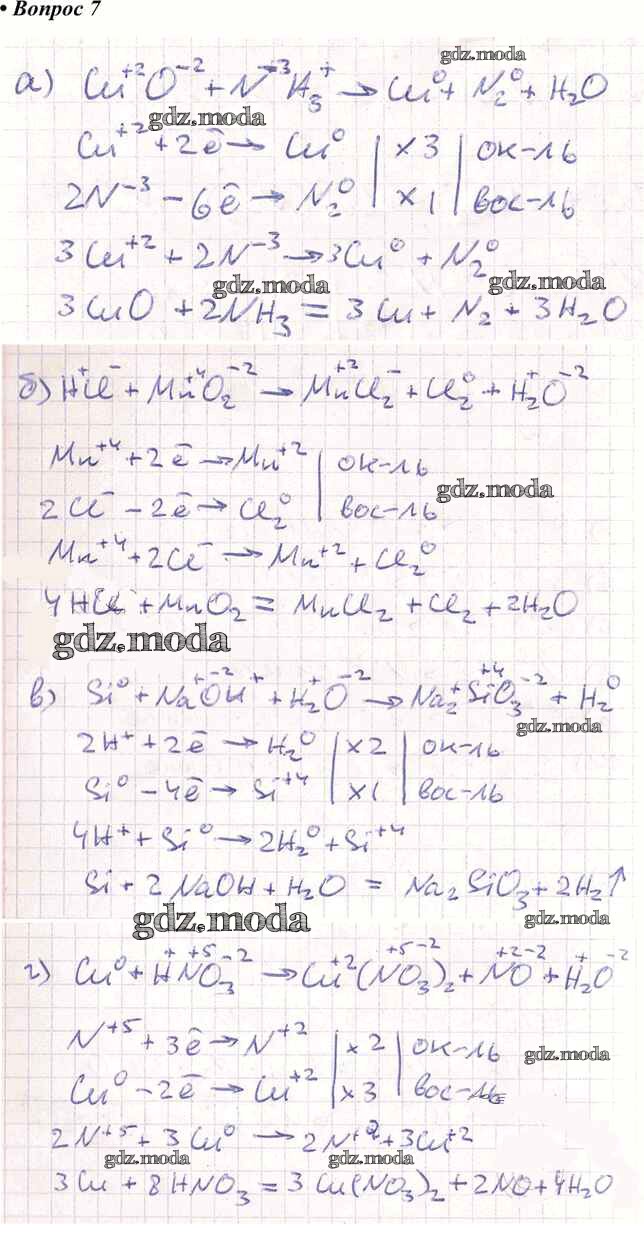 • Вопрос 7
gdz.moda
а) Cu⁺²O⁻² + N⁻³H₃⁺ → Cu⁰ + N₂⁰ + H₂O
gdz.moda
Cu⁺² + 2ē → Cu⁰ | ×3 | ок-ль
2N⁻³ - 6ē → N₂⁰ | ×1 | вос-ль
3Cu⁺² + 2N⁻³ → 3Cu⁰ + N₂⁰
gdz.moda gdz.moda
3CuO + 2NH₃ = 3Cu + N₂ + 3H₂O
б) H⁺Cl⁻ + Mn⁺⁴O₂⁻² → Mn⁺²Cl₂⁻ + Cl₂⁰ + H₂⁺O⁻²
Mn⁺⁴ + 2ē → Mn⁺² | ок-ль
gdz.moda
2Cl⁻ - 2ē → Cl₂⁰ | вос-ль
Mn⁺⁴ + 2Cl⁻ → Mn⁺² + Cl₂⁰
4HCl + MnO₂ = MnCl₂ + Cl₂ + 2H₂O
gdz.moda
в) Si⁰ + Na⁺O⁻²H⁺ + H₂⁺O⁻² → Na₂⁺Si⁺⁴O₃⁻² + H₂⁰
gdz.moda
2H⁺ + 2ē → H₂⁰ | ×2 | ок-ль
Si⁰ - 4ē → Si⁺⁴ | ×1 | вос-ль
4H⁺ + Si⁰ → 2H₂⁰ + Si⁺⁴
Si + 2NaOH + H₂O = Na₂SiO₃ + 2H₂↑
gdz.moda gdz.moda
г) Cu⁰ + H⁺N⁺⁵O₃⁻² → Cu⁺²(N⁺⁵O₃⁻²)₂ + N⁺²O⁻² + H₂⁺O⁻²
N⁺⁵ + 3ē → N⁺² | ×2 | ок-ль
gdz.moda
Cu⁰ - 2ē → Cu⁺² | ×3 | вос-ль
2N⁺⁵ + 3Cu⁰ → 2N⁺² + 3Cu⁺²
gdz.moda gdz.moda
3Cu + 8HNO₃ = 3Cu(NO₃)₂ + 2NO + 4H₂O